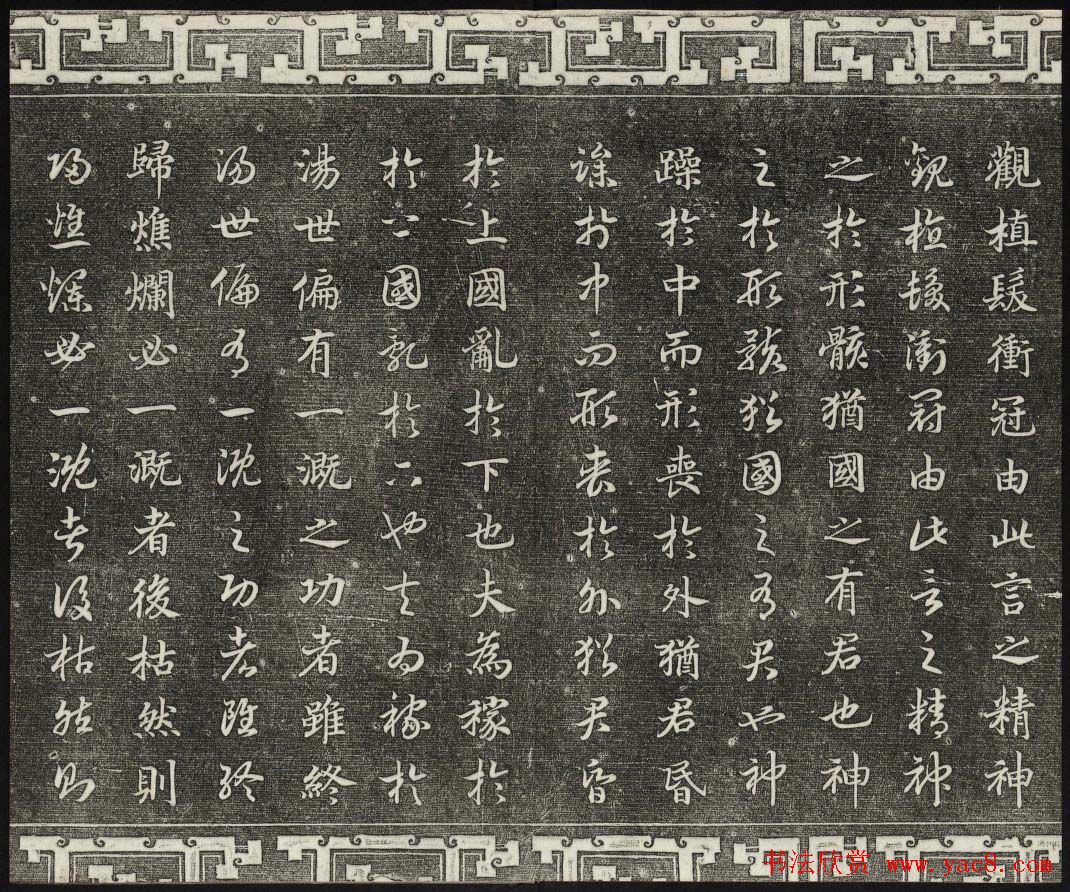 觀植髮衝冠由此言之精神
觀植髮衝冠由此言之精神
之於形骸猶國之有君也神
之於形骸猶國之有君也神
躁於中而形喪於外猶君昏
躁於中而形喪於外猶君昏
於上國亂於下也夫為稼於
於上國亂於下也夫為稼於
湯世偏有一溉之功者雖終
湯世偏有一溉之功者雖終
歸燋爛必一溉者後枯然則
歸燋爛必一溉者後枯然則
书法欣赏 www.yac8.com